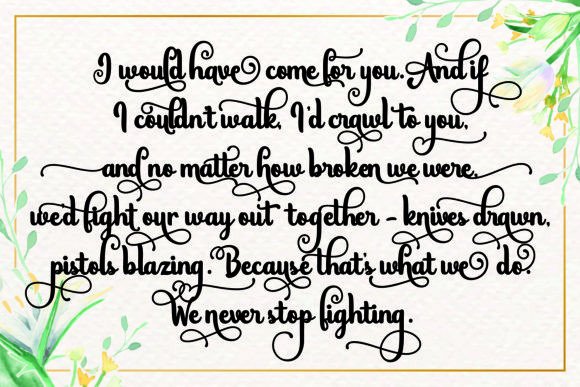 I would have come for you. And if
I couldnt walk, I'd crawl to you,
and no matter how broken we were,
we'd fight our way out together - knives drawn,
pistols blazing. Because that's what we do.
We never stop fighting.